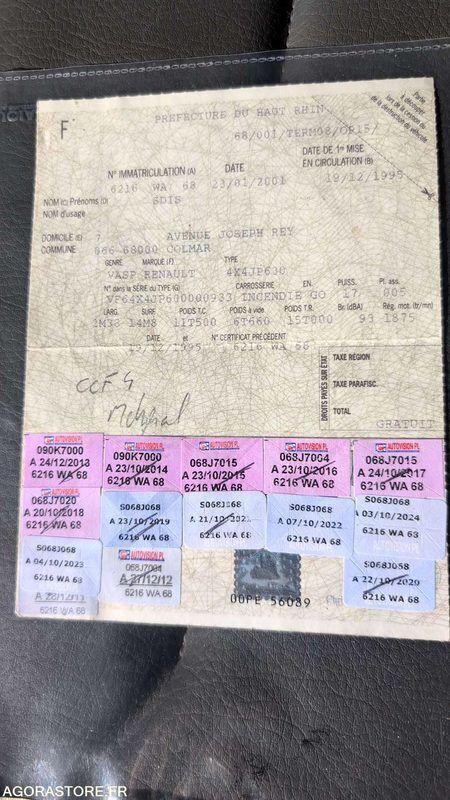 F
PREFECTURE DU HAUT RHIN
Partie
à découper
lors de la cession ou
de la destruction du véhicule
68/001/TERM08/OP15/
N° IMMATRICULATION (A)
DATE
DATE DE 1re MISE
EN CIRCULATION (B)
6216 WA 68 23/01/2001 19/12/1995
NOM (C) Prénoms (D) SDIS
NOM d'usage
DOMICILE (E) 7 AVENUE JOSEPH REY
COMMUNE 066-68000 COLMAR
GENRE MARQUE (F) TYPE
VASP RENAULT 4X4JP63C
N° dans la SÉRIE du TYPE (G) CARROSSERIE EN. PUISS. Pl. ass.
VF64X4JP600000933 INCENDIE GO 17 005
LARG. SURF. POIDS T.C. POIDS à vide POIDS T.R. Br. (dBA) Rég. mot. (tr/mn)
1M38 14M8 11T500 6T660 15T000 93 1875
DATE et N° CERTIFICAT PRÉCÉDENT
19/12/1995 6216 WA 68
DROITS PAYÉS SUR ÉTAT
TAXE RÉGION
TAXE PARAFISC.
TOTAL
GRATUIT
CCF 4
AUTOVISION PL
090K7000
A 24/12/2013
6216 WA 68
AUTOVISION PL
090K7000
A 23/10/2014
6216 WA 68
AUTOVISION PL
068J7015
A 23/10/2015
6216 WA 68
AUTOVISION PL
068J7004
A 23/10/2016
6216 WA 68
AUTOVISION PL
068J7015
A 24/10/2017
6216 WA 68
AUTOVISION PL
068J7020
A 20/10/2018
6216 WA 68
S068J068
A 23/10/2019
6216 WA 68
S068J068
6216 WA 68
S068J068
A 07/10/2022
6216 WA 68
S068J068
A 03/10/2024
6216 WA 68
S068J068
A 04/10/2023
6216 WA 68
6216 WA 68
AUTOVISION PL
068J7004
A 27/12/12
6216 WA 68
00PE 56089
S068J068
A 22/10/2020
6216 WA 68
AGORASTORE.FR